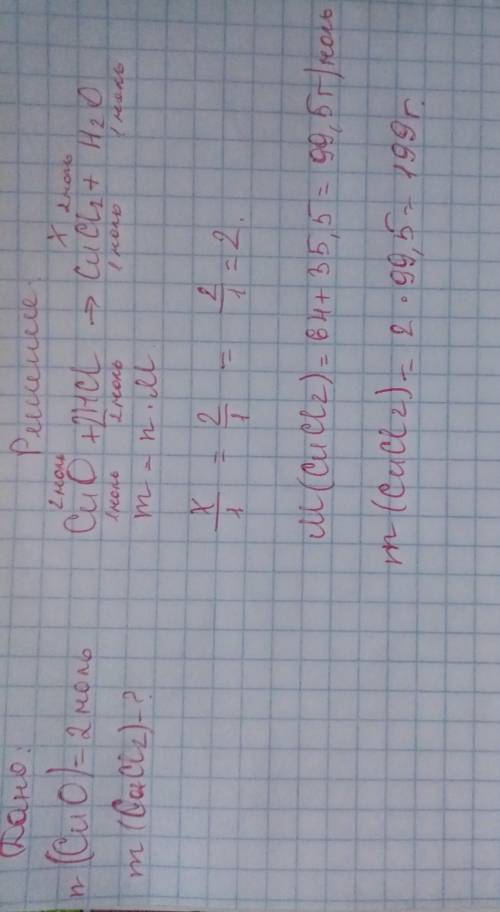 Дано:
n (CuO) = 2 моль
m (CuCl2) - ?
Решение.
2 моль x 2 моль
CuO + 2HCl → CuCl2 + H2O
1 моль 2 моль 1 моль 1 моль
m = n · M
x/1 = 2/1 = 2/1 = 2.
M (CuCl2) = 64 + 35,5 = 99,5 г/моль
m (CuCl2) = 2 · 99,5 = 199 г.